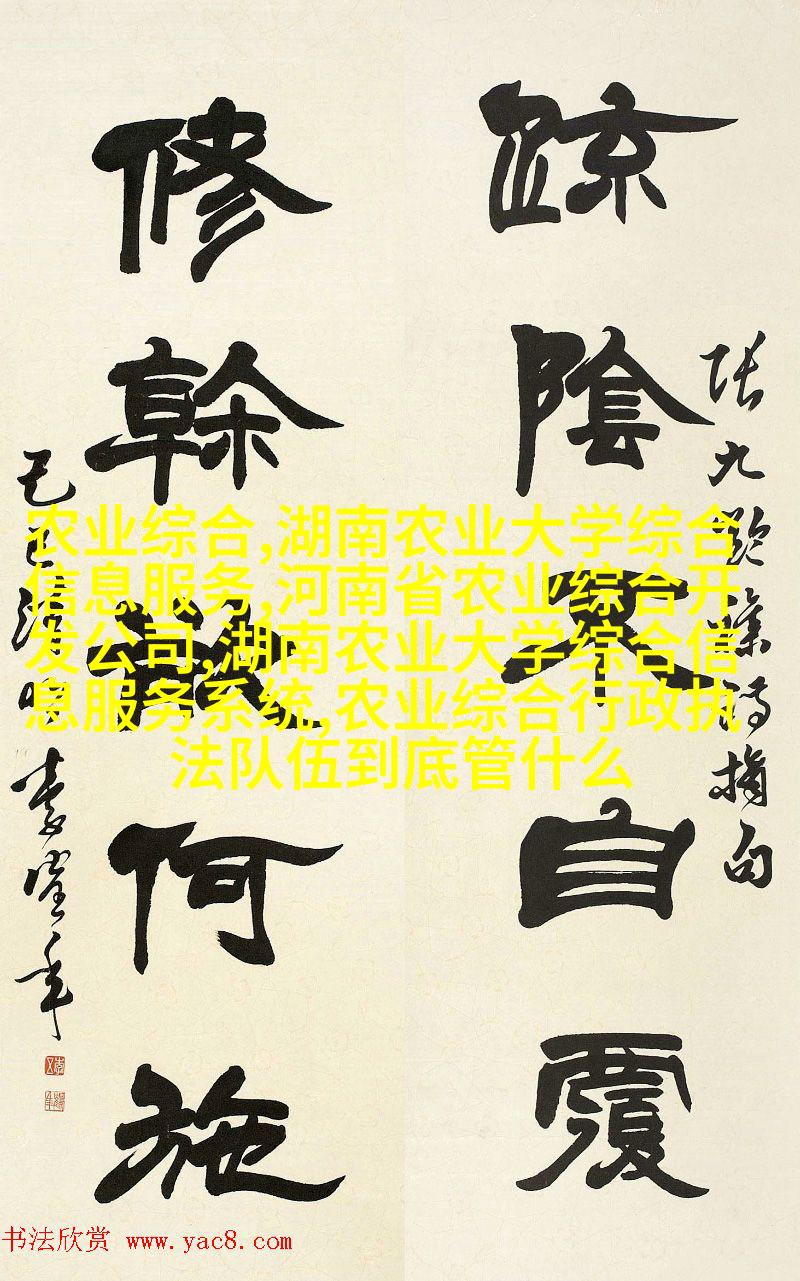 疏陰不自覆
張九齡詩摘句
修榦何施
己巳清明
农业综合,湖南农业大学综合
信息服务,河南省农业综合开
发公司,湖南农业大学综合信
息服务系统,农业综合行政执
法队伍到底管什么
书法欣赏 www.yac8.com